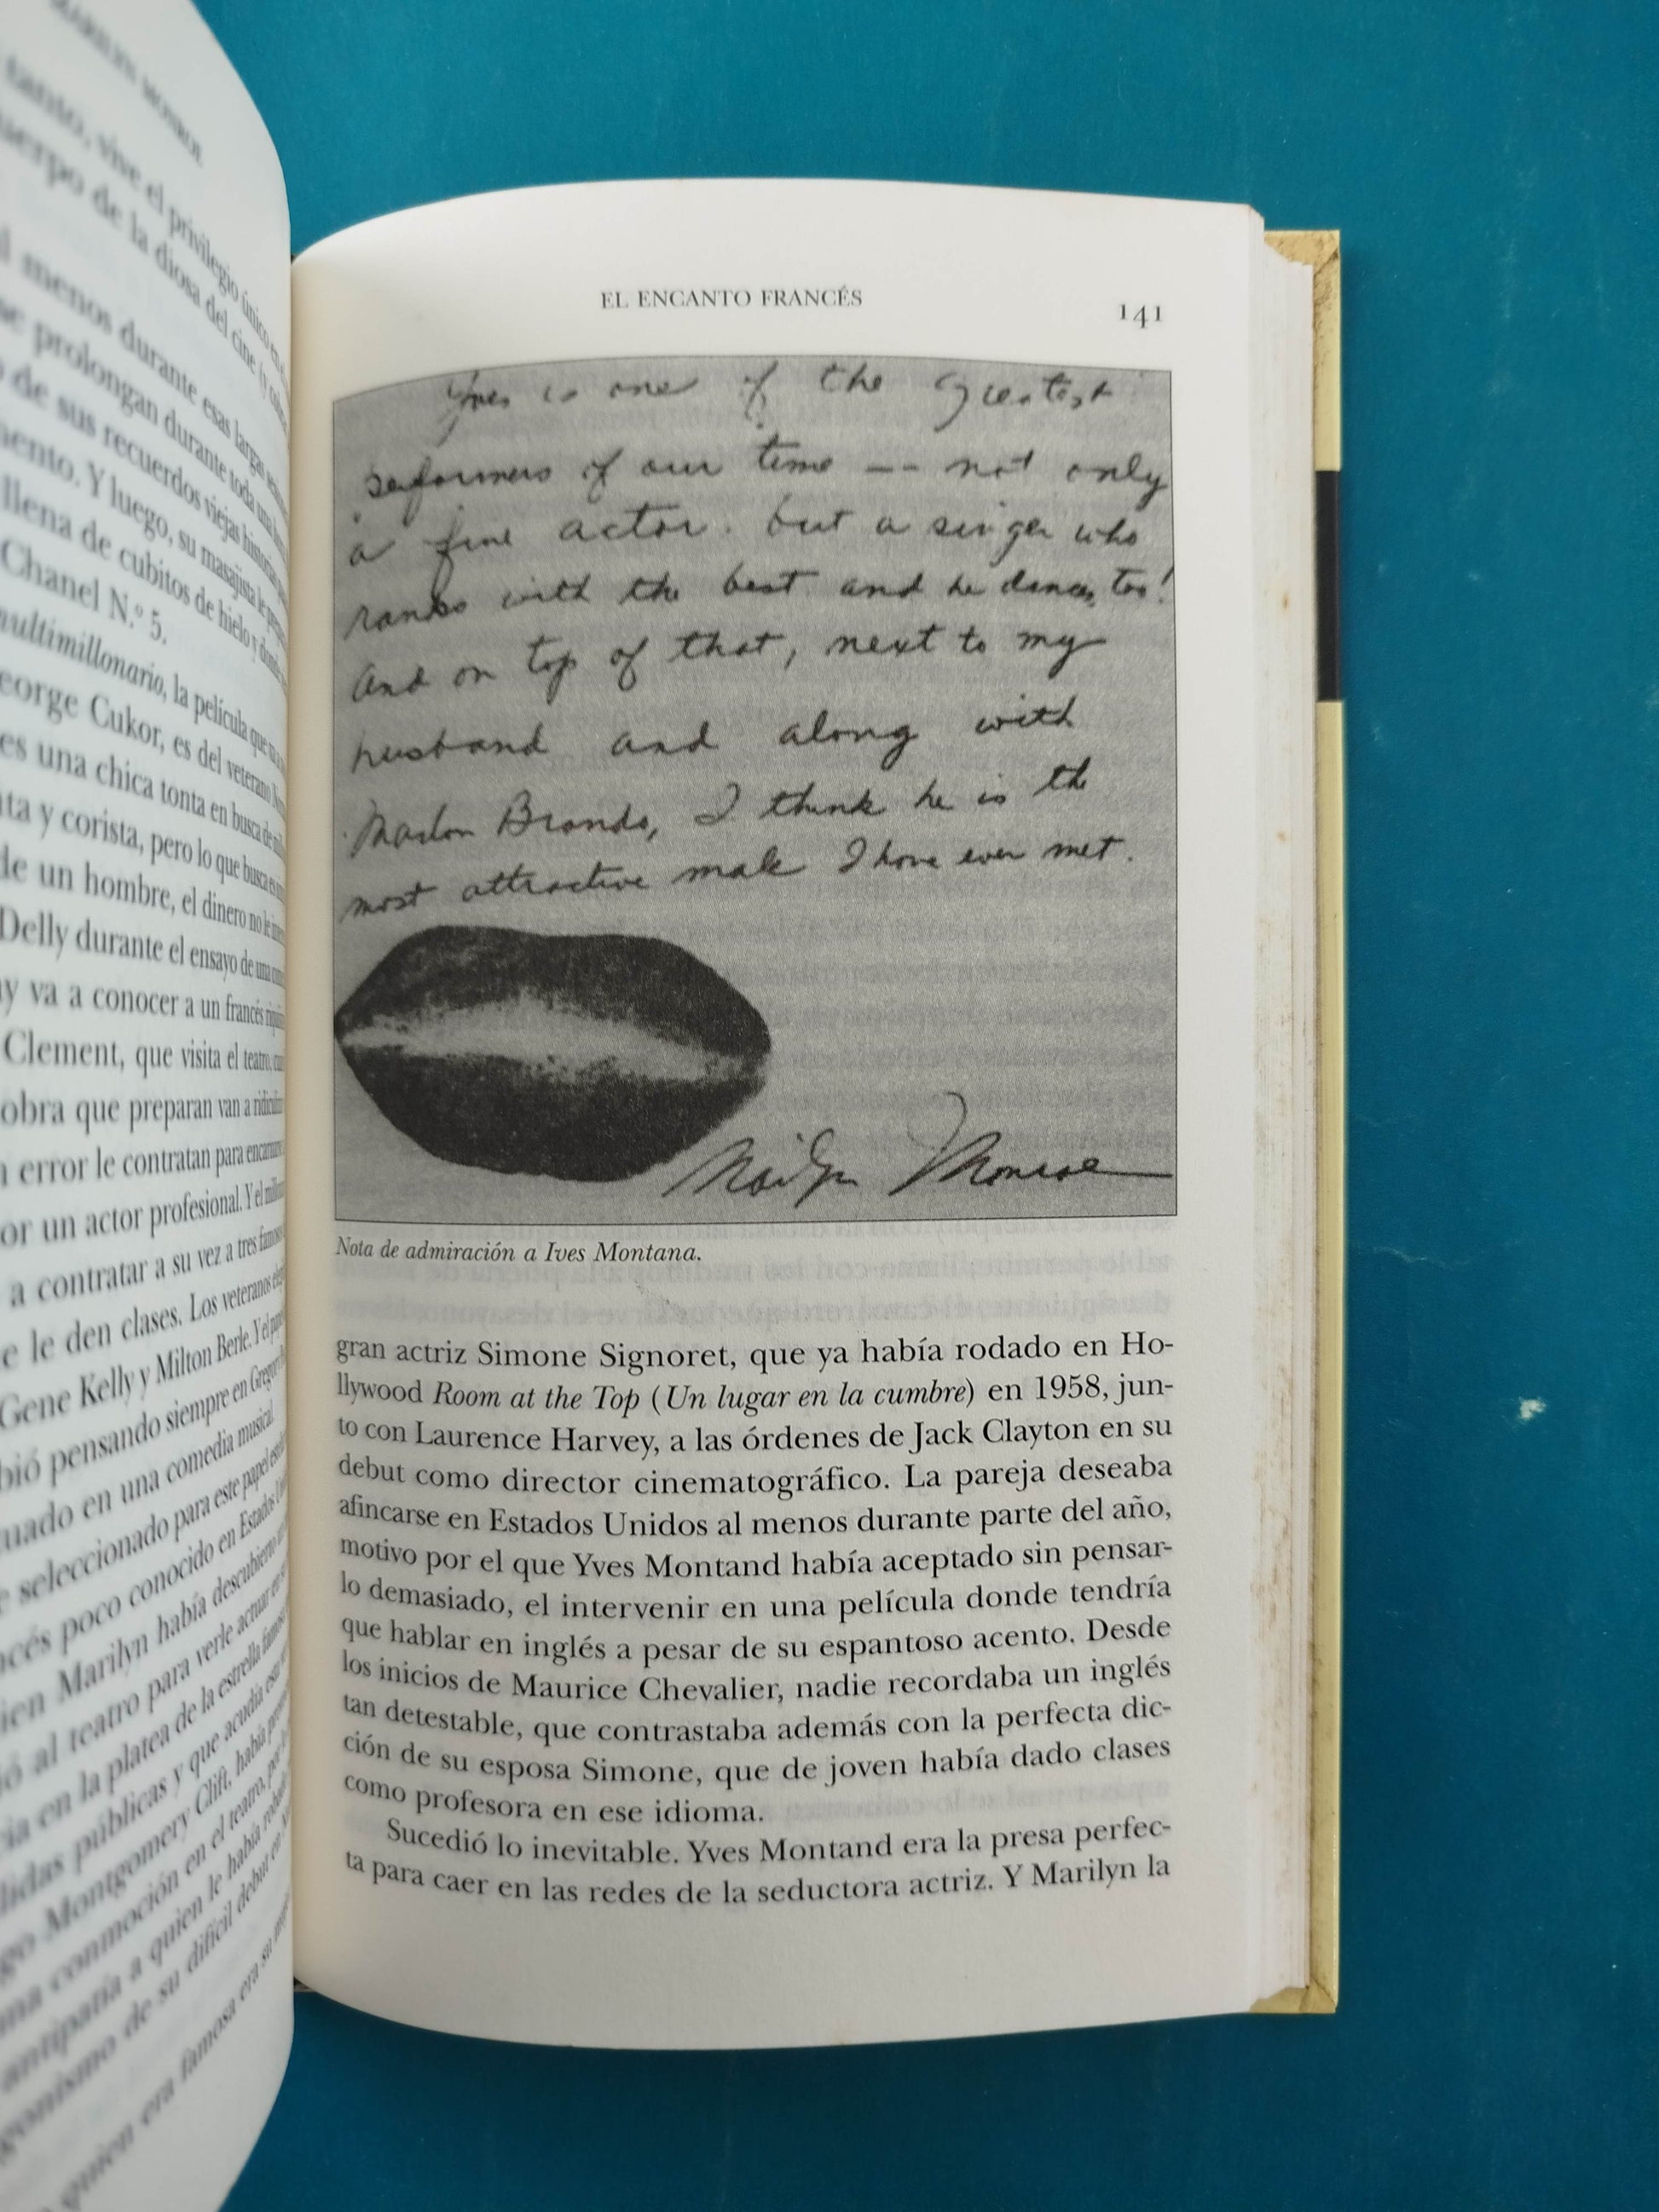 MARILYN MONROE
tanto, vive el privilegio único
cuerpo de la diosa del cine (y
menos durante esas largas
se prolongan durante toda una
de sus recuerdos viejas historias
mento. Y luego, su masajista le
llena de cubitos de hielo y donde
Chanel N.º 5.
multimillonario, la película que
George Cukor, es del veterano
es una chica tonta en busca de
ta y corista, pero lo que busca es
de un hombre, el dinero no le
Delly durante el ensayo de una
y va a conocer a un francés
Clement, que visita el teatro,
obra que preparan van a
error le contratan para
or un actor profesional. Y el
a contratar a su vez a tres famosos
e le den clases. Los veteranos
Gene Kelly y Milton Berle. Y el
bió pensando siempre en Gregory
cuado en una comedia musical.
e seleccionado para este papel
ncés poco conocido en Estados
ien Marilyn había descubierto
ó al teatro para verle actuar en
ía en la platea de la estrella famosa
lidas públicas y que acudía
go Montgomery Clift, había
na conmoción en el teatro,
antipatía a quien le había
gonismo de su difícil debut en
quien era famosa era su
EL ENCANTO FRANCÉS
141
Yves is one of the greatest
performers of our time -- not only
a fine actor. but a singer who
ranks with the best and he dances, too!
and on top of that, next to my
husband and along with
Marlon Brando, I think he is the
most attractive male I have ever met.
Marilyn Monroe
Nota de admiración a Ives Montana.
gran actriz Simone Signoret, que ya había rodado en Ho-
llywood Room at the Top (Un lugar en la cumbre) en 1958, jun-
to con Laurence Harvey, a las órdenes de Jack Clayton en su
debut como director cinematográfico. La pareja deseaba
afincarse en Estados Unidos al menos durante parte del año,
motivo por el que Yves Montand había aceptado sin pensar-
lo demasiado, el intervenir en una película donde tendría
que hablar en inglés a pesar de su espantoso acento. Desde
los inicios de Maurice Chevalier, nadie recordaba un inglés
tan detestable, que contrastaba además con la perfecta dic-
ción de su esposa Simone, que de joven había dado clases
como profesora en ese idioma.
Sucedió lo inevitable. Yves Montand era la presa perfec-
ta para caer en las redes de la seductora actriz. Y Marilyn la